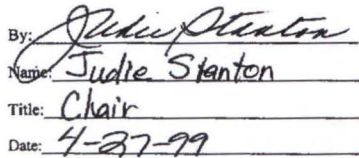 By: Judie Stanton
Name: Judie Stanton
Title: Chair
Date: 4-27-99